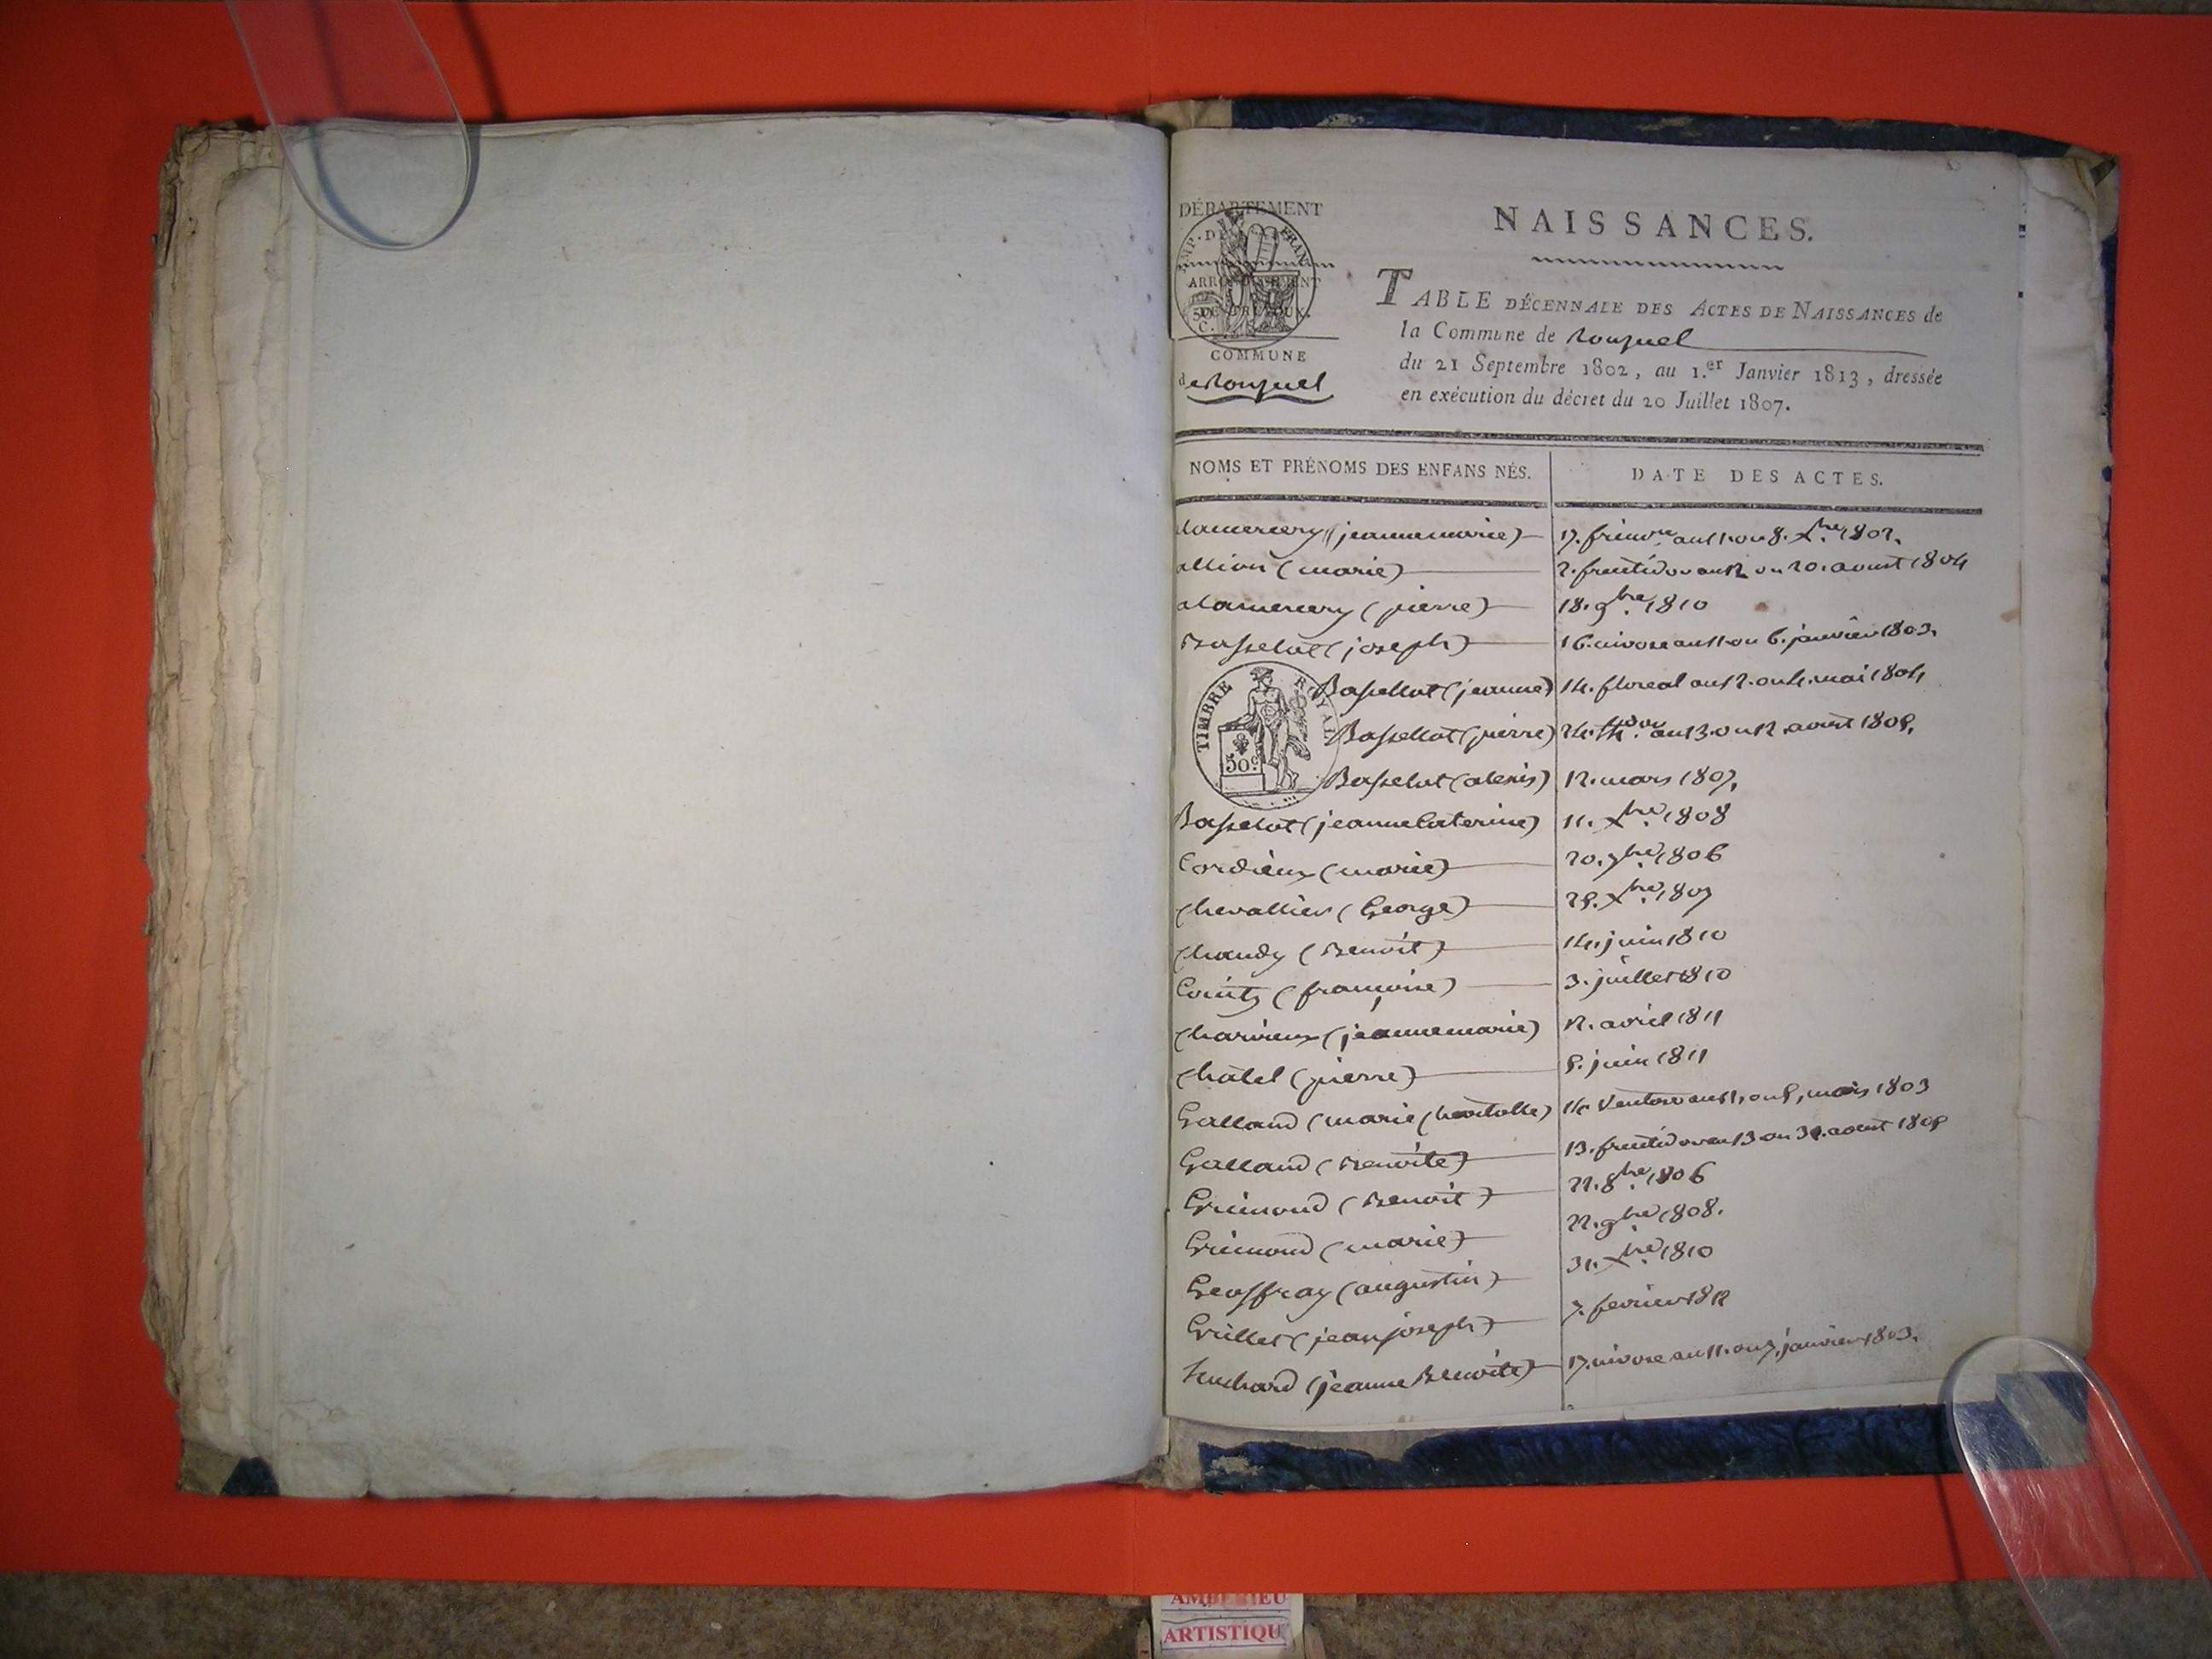 DÉPARTEMENT
ARRONDISSEMENT
DE TRÉVOUX.
50 C.
COMMUNE
de Ronzuel
NAISSANCES.
TABLE DÉCENNALE DES ACTES DE NAISSANCES de
la Commune de Ronzuel
du 21 Septembre 1802, au 1.er Janvier 1813, dressée
en exécution du décret du 20 Juillet 1807.
NOMS ET PRÉNOMS DES ENFANS NÉS. DATE DES ACTES.
alamercery (jeanne marie) 17. frimre an 11. ou 8. Xbre 1802.
allion (marie) 2. fructidor an 12 ou 20. aoust 1804
alamercery (pierre) 18. 9bre 1810
Basselat (joseph) 16. nivose an 11. ou 6. janvier 1803.
TIMBRE ROYAL
50 c
Bassellat (jeanne) 14. floreal an 12. ou 4. mai 1804
Bassellat (pierre) 24. thdor an 13. ou 12 aoust 1805.
Basselat (alexis) 12. mars 1807.
Basselat (jeanne Caterine) 11. Xbre 1808
Cordieux (marie) 20. 7bre 1806
Chevallier (George) 25. Xbre 1807
Chandy (Benoit) 14. juin 1810
(françoise) 3. juillet 1810
Charvieux (jeanne marie) 12. avril 1811
Chatel (pierre) 5. juin 1811
Galland (marie) 14 Ventose an 11. ou 5, mars 1803
Galland (Benoite) 13. fructidor an 13 ou 31. aoust 1805
Grimond (Benoit) 22. 8bre 1806
Grimond (marie) 22. 9bre 1808.
Geoffray (augustin) 31. Xbre 1810
Grillet (jean joseph) 7. fevrier 1812
(jeanne Benoite) 17. nivose an 11. ou 7. janvier 1803.
AMBERIEU
ARTISTIQU